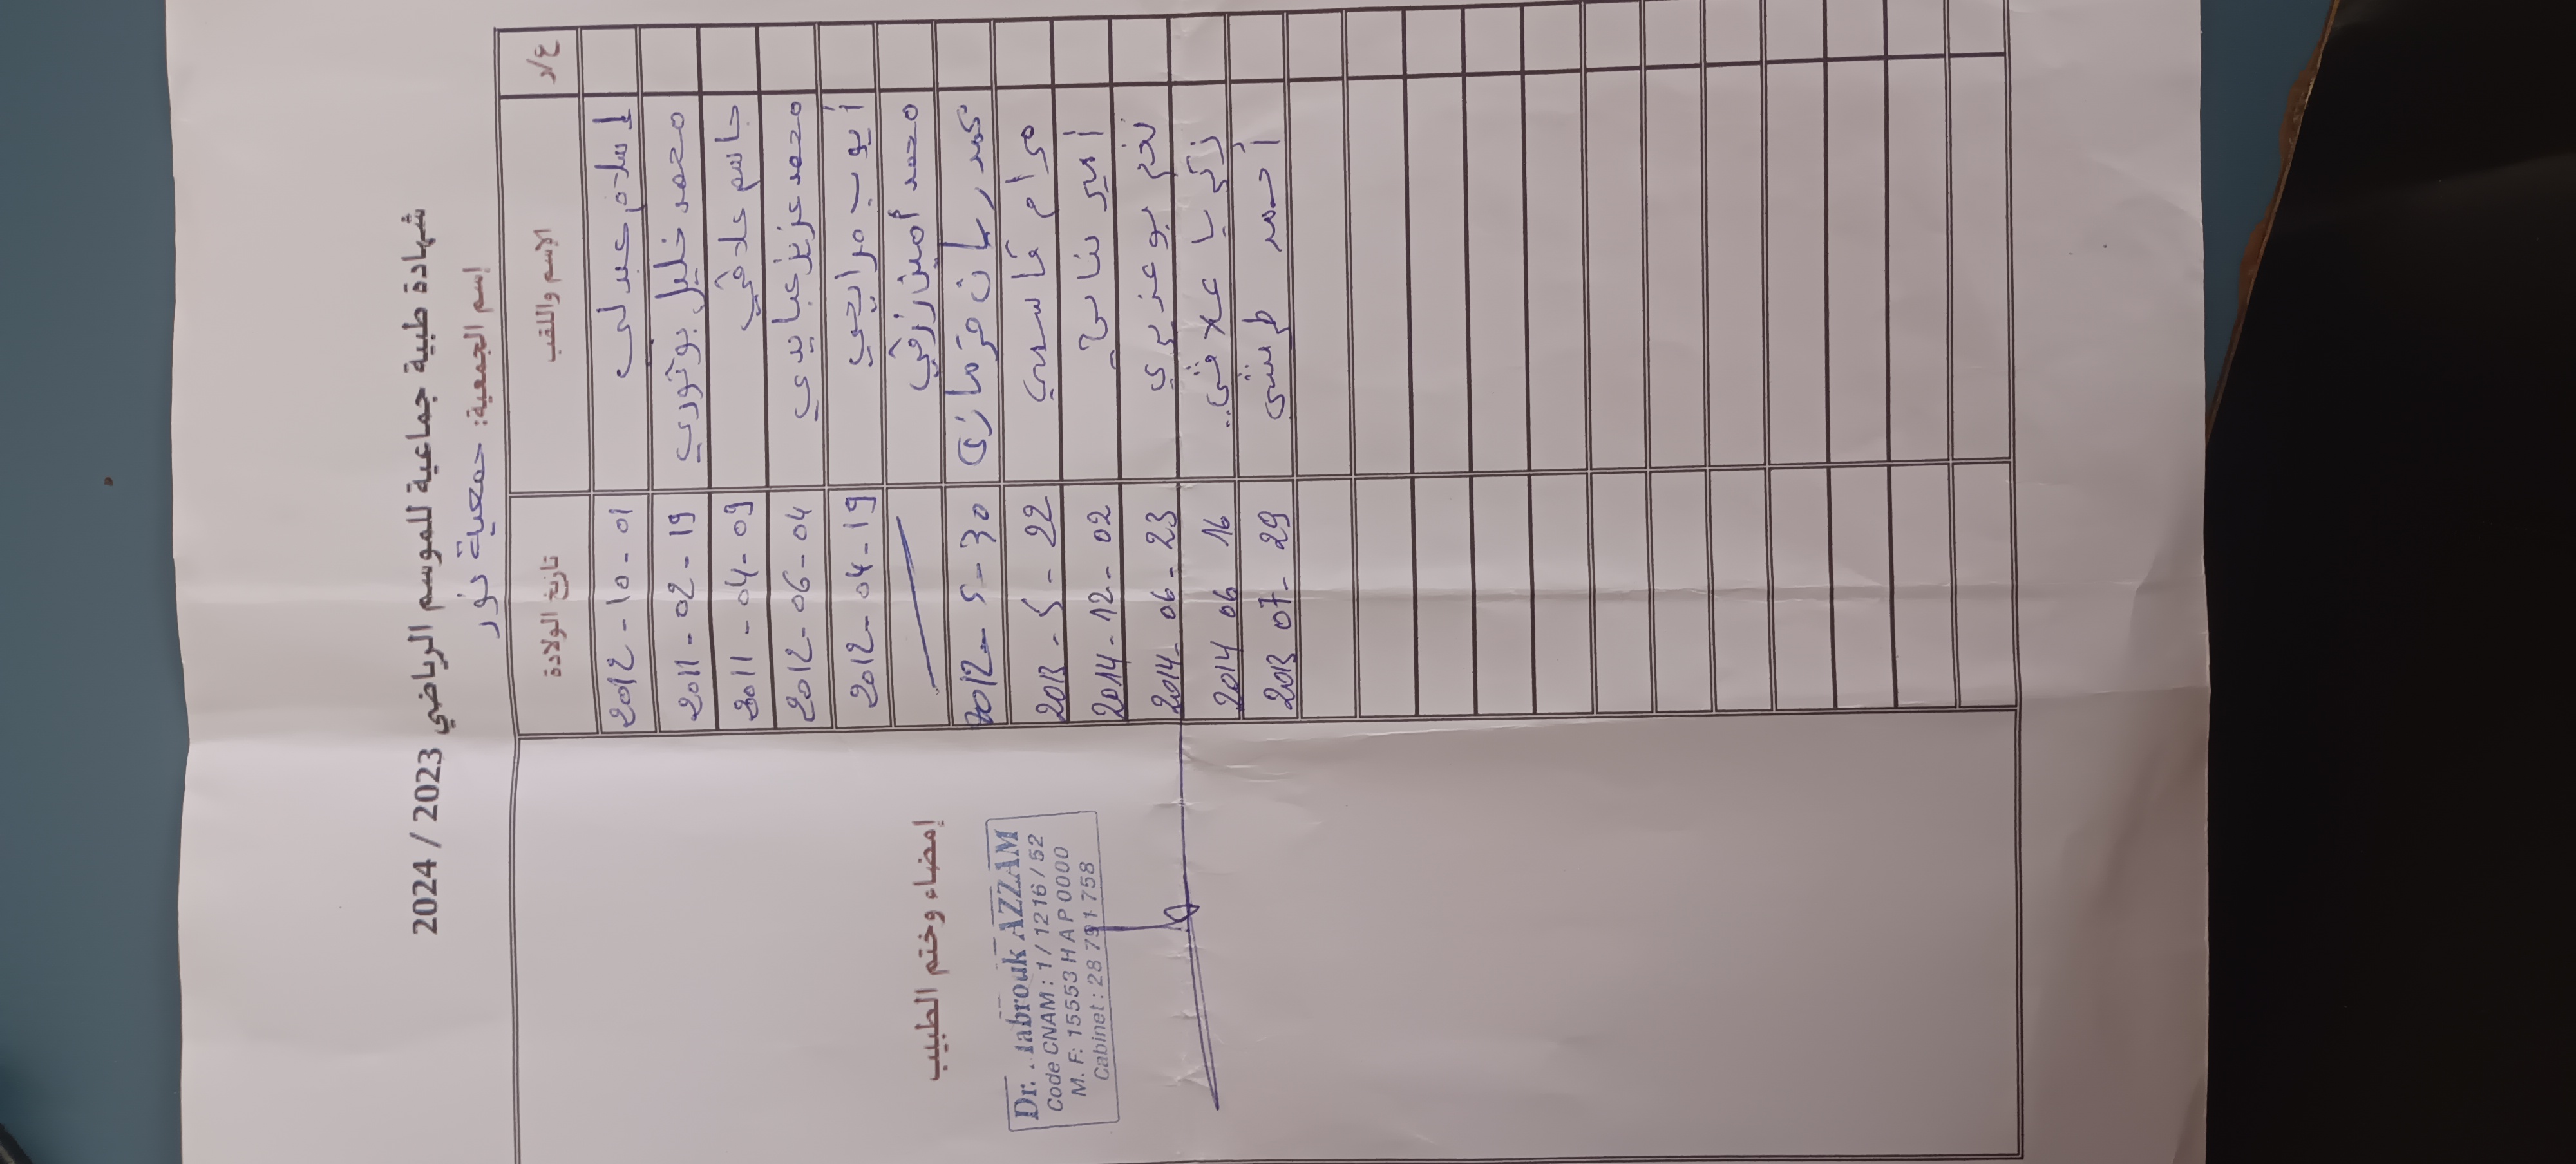 شهادة طبية جماعية للموسم الرياضي 2023 / 2024
إسم الجمعية: جمعية نور
ع/د الإسم واللقب تاريخ الولادة
إسلام عبدلي 2012 - 10 - 01
محمد خليل بوثوري 2011 - 02 - 19
جاسم علاقي 2011 - 04 - 09
محمد عزيز عبايدي 2012 - 06 - 04
أيوب مرايحي 2012 - 04 - 19
محمد أمين رزقي
محمد ريان قرمازي 2012 - 5 - 30
مرام قاسمي 2013 - 5 - 22
أمير 2014 - 12 - 02
بوعزيزي 2014 - 06 - 23
زكريا علاقي 2014 06 16
أحمد 2013 07 - 29
إمضاء وختم الطبيب
Dr. AZZAM
Code CNAM : 1 / 1216 / 52
M. F: 15553 H A P 0000
Cabinet : 28 791 758